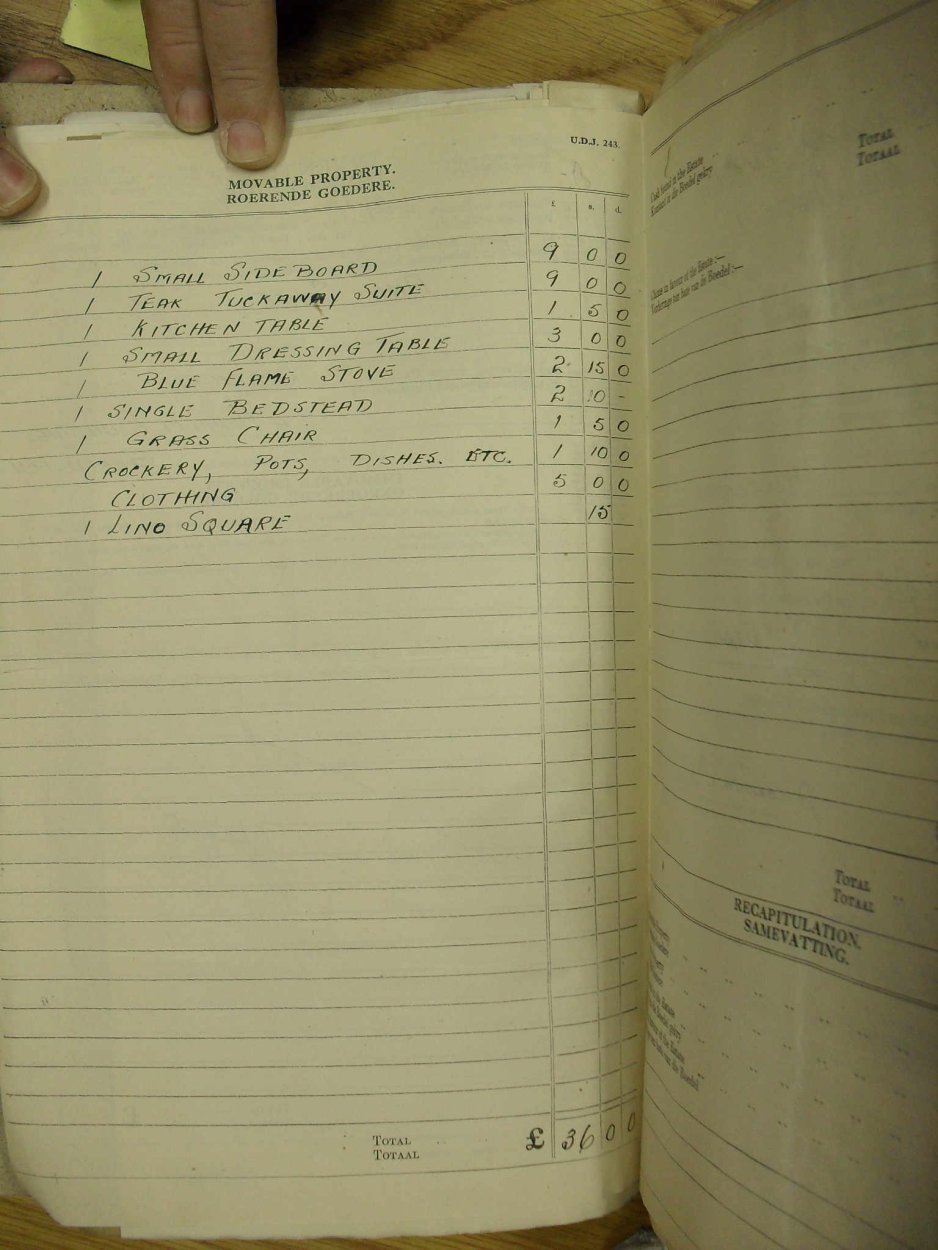 U.D.J. 243.
MOVABLE PROPERTY.
ROERENDE GOEDERE.
£ s. d.
1 SMALL SIDEBOARD 9 0 0
1 TEAK TUCKAWAY SUITE 9 0 0
1 KITCHEN TABLE 1 5 0
1 SMALL DRESSING TABLE 3 0 0
1 BLUE FLAME STOVE 2 15 0
1 SINGLE BEDSTEAD 2 10 -
1 GRASS CHAIR 1 5 0
CROCKERY, POTS, DISHES. ETC. 1 10 0
CLOTHING 5 0 0
1 LINO SQUARE 15
TOTAL
TOTAAL £ 36 0 0
Cash found in the Estate
Kontant in die Boedel gekry
TOTAL
TOTAAL
Claims in favour of the Estate:—
Vorderinge ten bate van die Boedel:—
TOTAL
TOTAAL
RECAPITULATION.
SAMEVATTING.